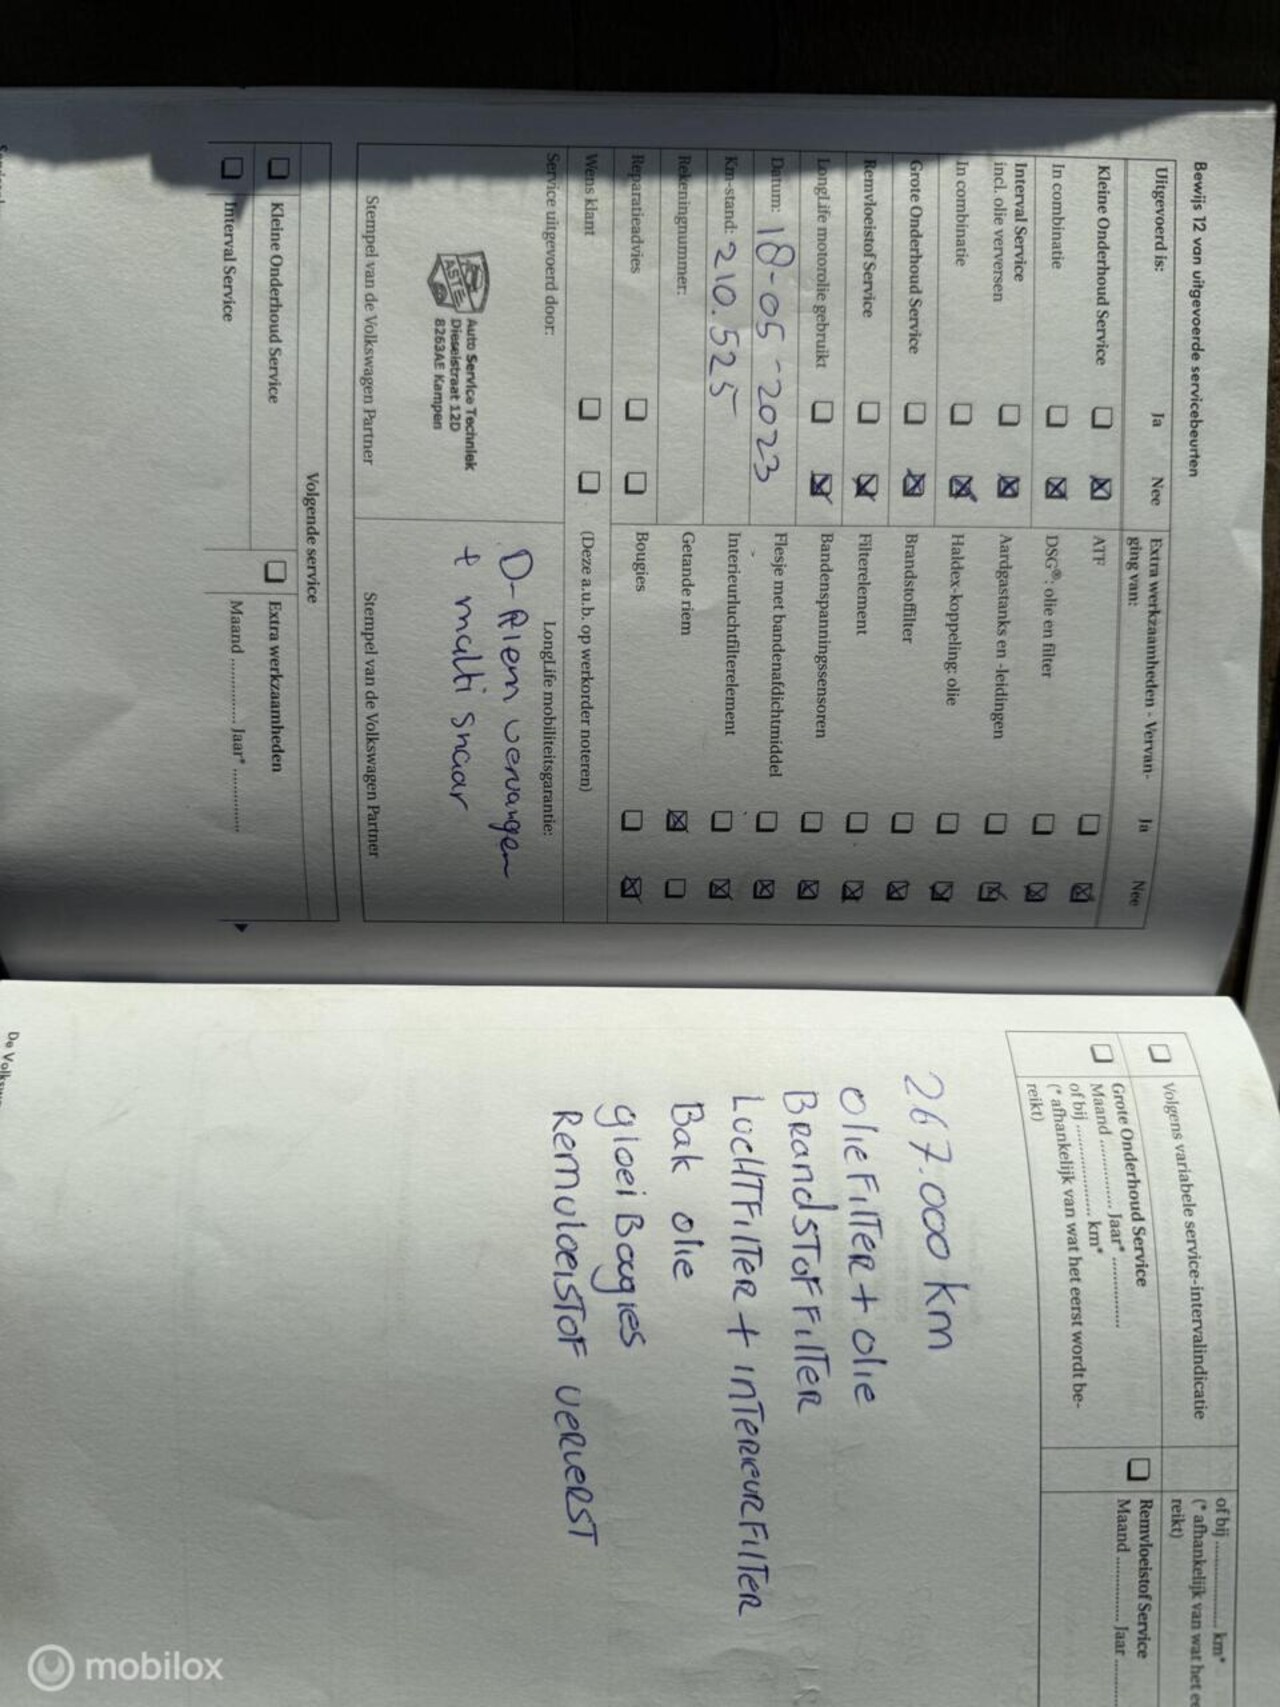 Bewijs 12 van uitgevoerde servicebeurten
Uitgevoerd is: Ja Nee
Kleine Onderhoud Service
In combinatie
Interval Service
incl. olie verversen
In combinatie
Grote Onderhoud Service
Remvloeistof Service
LongLife motorolie gebruikt
Datum: 18-05-2023
Km-stand: 210.525
Rekeningnummer:
Reparatieadvies
Wens klant
Extra werkzaamheden - Vervan-
ging van: Ja Nee
ATF
DSG®: olie en filter
Aardgastanks en -leidingen
Haldex-koppeling: olie
Brandstoffilter
Filterelement
Bandenspanningssensoren
Flesje met bandenafdichtmiddel
Interieurluchtfilterelement
Getande riem
Bougies
(Deze a.u.b. op werkorder noteren)
Service uitgevoerd door:
AST
Auto Service Techniek
Dieselstraat 12D
8263AE Kampen
Stempel van de Volkswagen Partner
LongLife mobiliteitsgarantie:
D-Riem vervangen
+ multi snaar
Stempel van de Volkswagen Partner
Volgende service
Kleine Onderhoud Service
Interval Service
Extra werkzaamheden
Maand .............. Jaar* ..............
Volgens variabele service-intervalindicatie
Grote Onderhoud Service
Maand .............. Jaar* ..............
of bij .................. km*
(* afhankelijk van wat het eerst wordt be-
reikt)
of bij .................. km*
(* afhankelijk van wat het
reikt)
Remvloeistof Service
Maand .............. Jaar
267.000 km
olieFilTER + olie
BRandSToFFilTER
LuCHTFilTER + inTERieURFilTER
Bak olie
gloei Bougies
RemvloeisToF VERVERST
De Volksw
mobilox